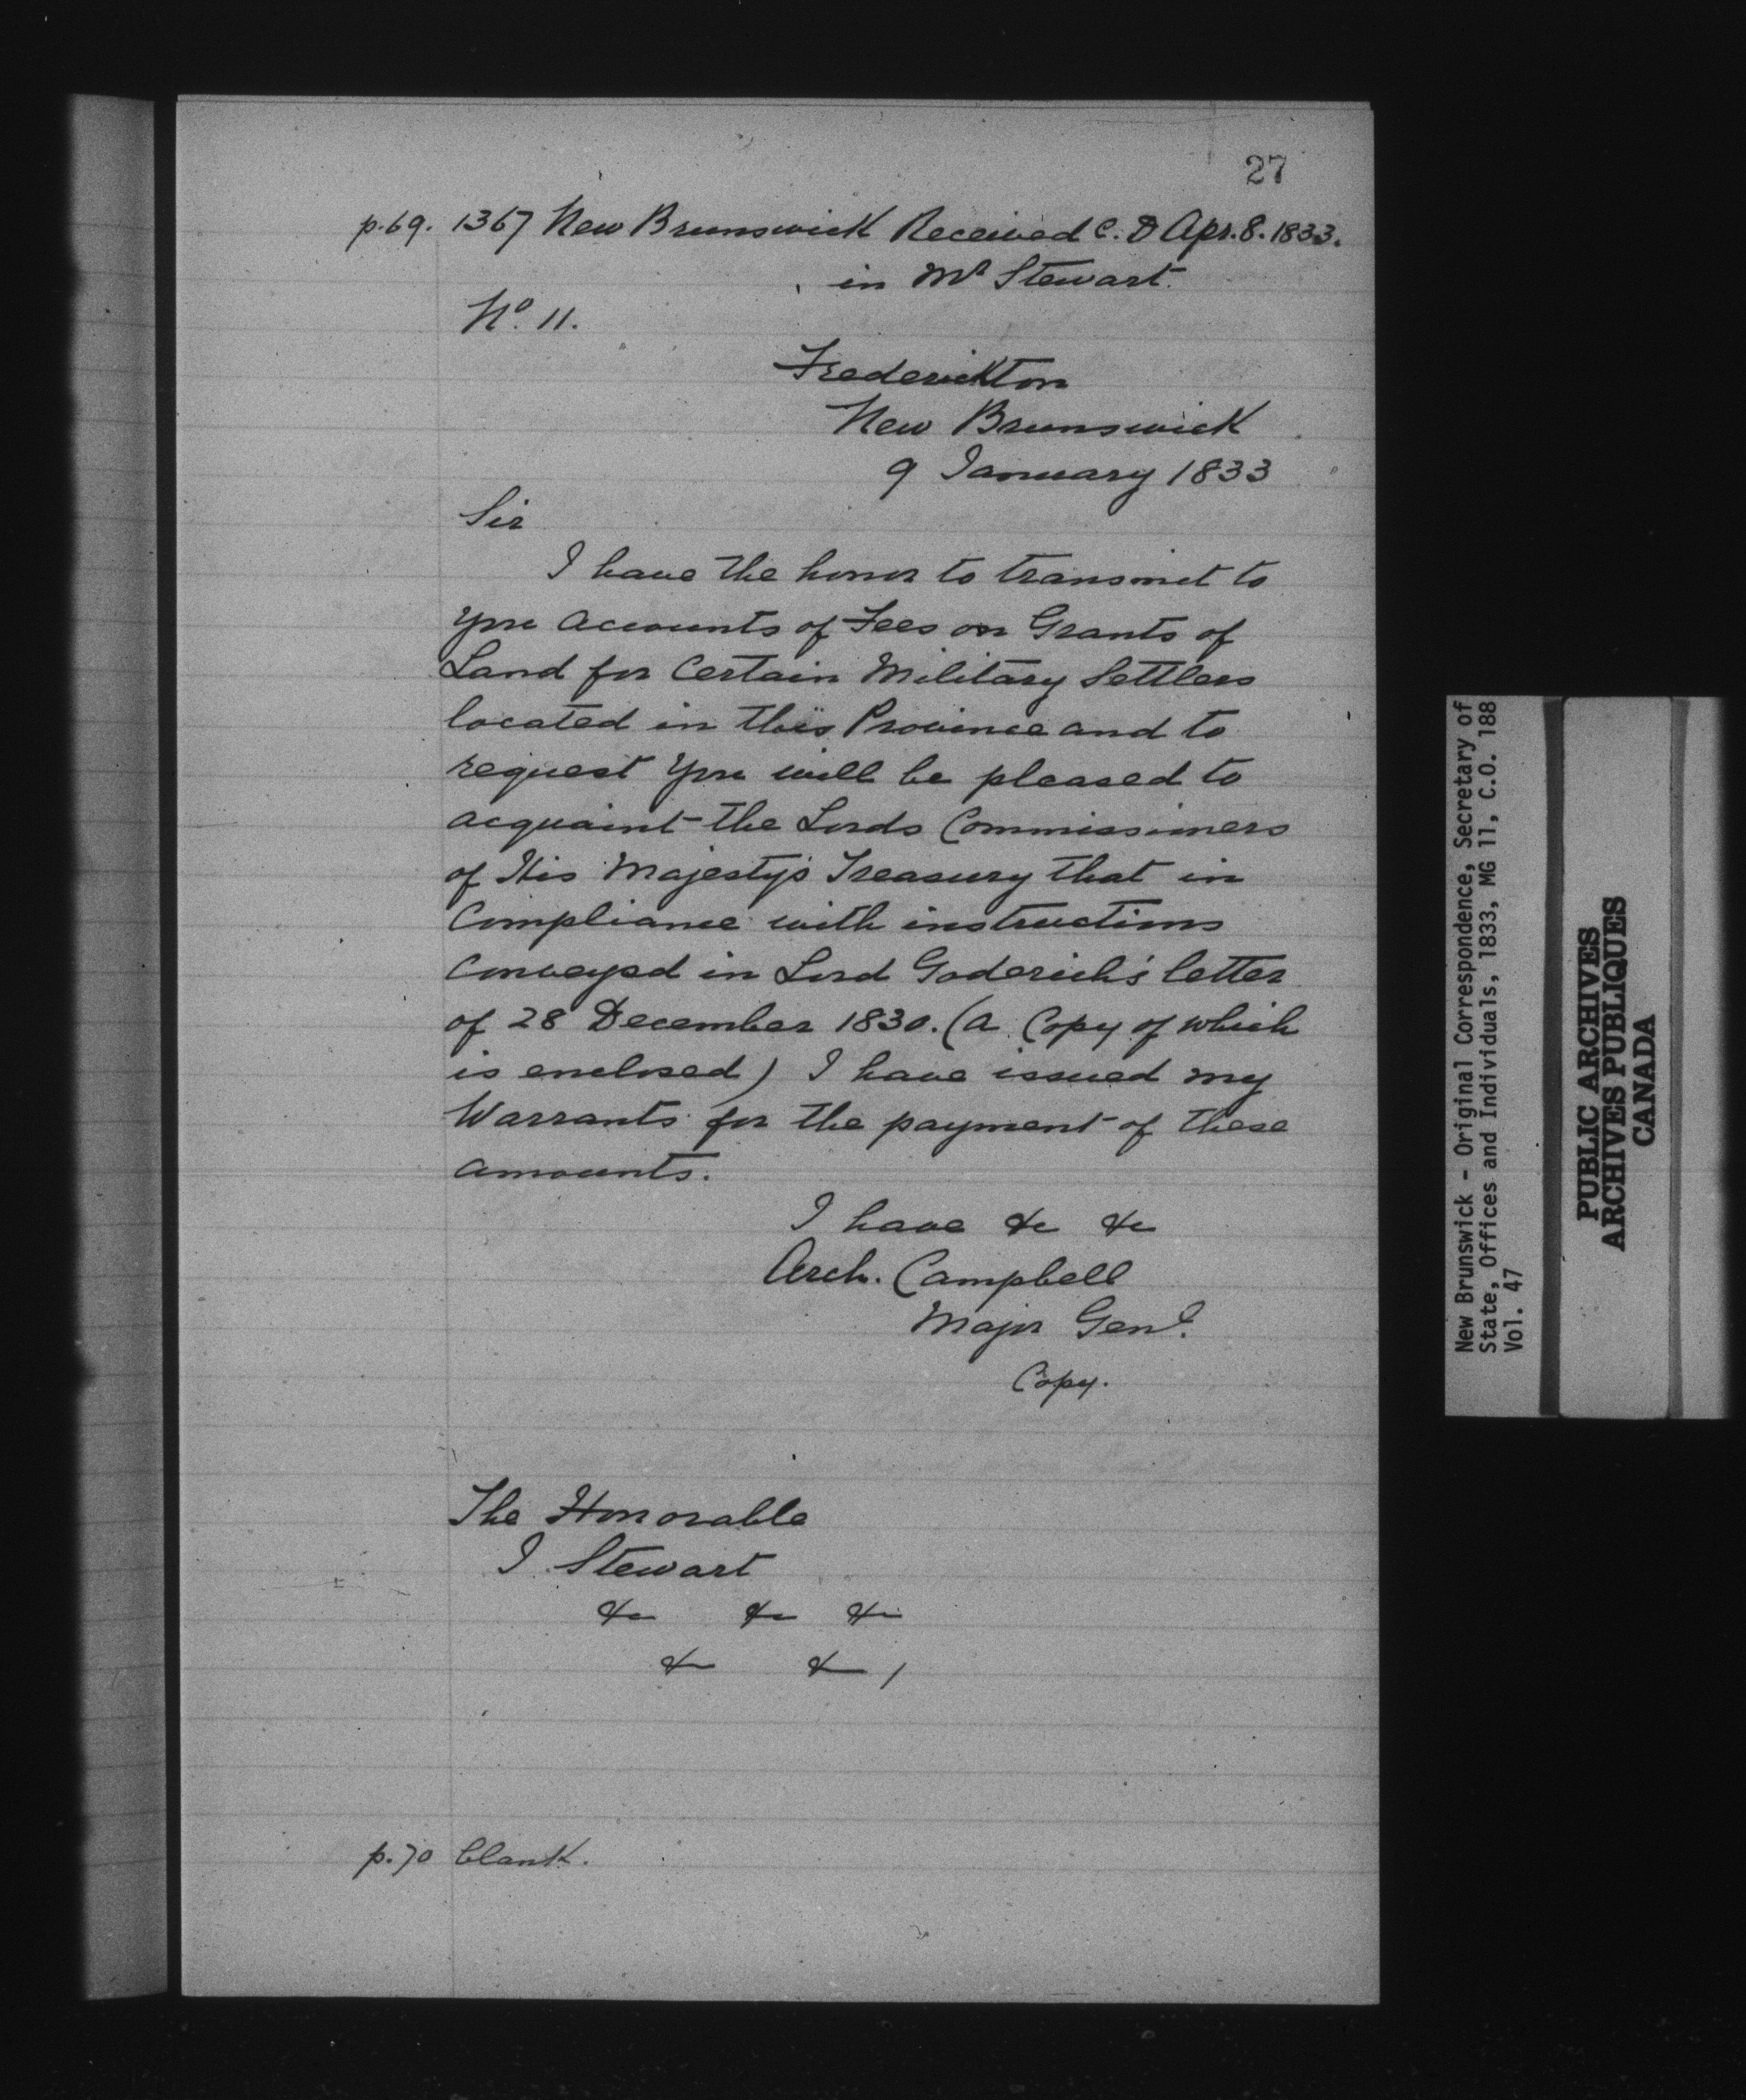 27
p.69. 1367 New Brunswick Received C. D Apr. 8. 1833.
in Mr Stewart.
No. 11.
Frederickton
New Brunswick
9 January 1833
Sir
I have the honor to transmit to
you Accounts of Fees on Grants of
Land for Certain Military Settlers
located in this Province and to
request you will be pleased to
acquaint the Lords Commissioners
of His Majesty's Treasury that in
Compliance with instructions
Conveyed in Lord Goderich's letter
of 28 December 1830. (a Copy of which
is enclosed) I have issued my
Warrants for the payment of these
amounts.
I have &c &c
Arch. Campbell
Major Genl.
Copy.
The Honorable
J. Stewart
&c &c &c
&c &c /
p.70 blank.
New Brunswick - Original Correspondence, Secretary of
State, Offices and Individuals, 1833, MG 11, C.O. 188
Vol. 47
PUBLIC ARCHIVES
ARCHIVES PUBLIQUES
CANADA